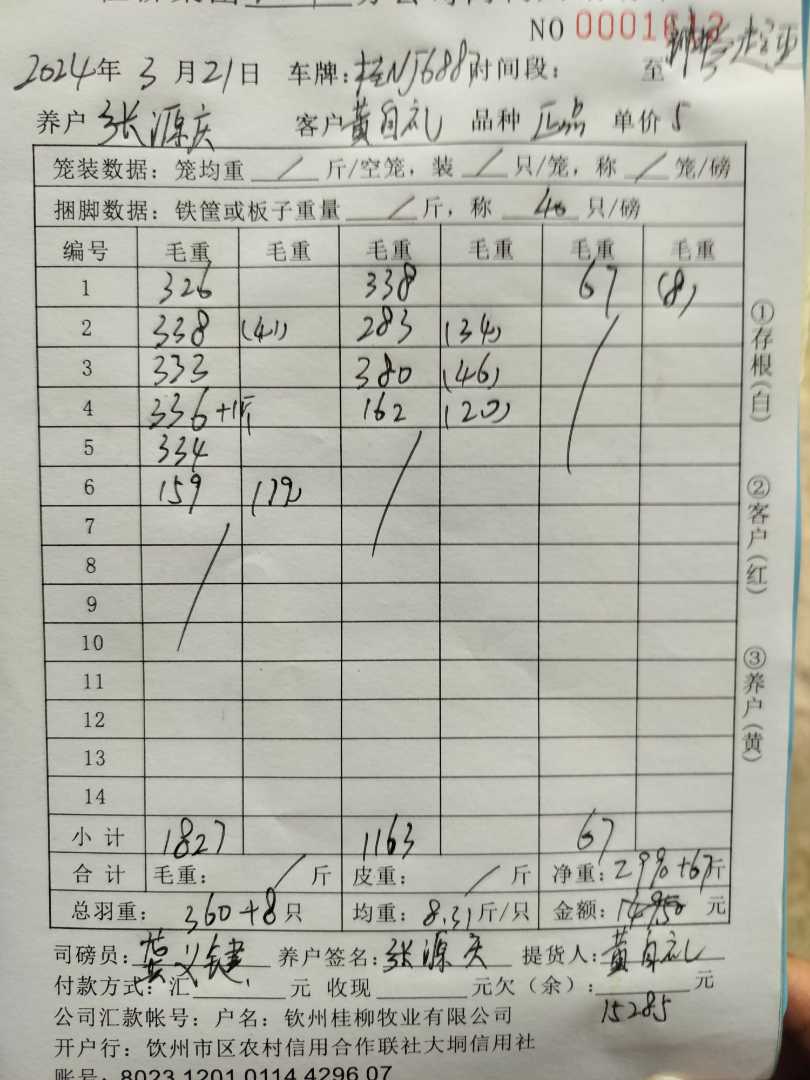 NO 0001613
2024年 3月21日 车牌:桂NJ6887 时间段: 至
养户 张源庆 客户 黄自礼 品种 正品 单价 5
笼装数据: 笼均重 / 斤/空笼, 装 / 只/笼, 称 / 笼/磅
捆脚数据: 铁筐或板子重量 / 斤, 称 40 只/磅
编号 毛重 毛重 毛重 毛重 毛重 毛重
1 326 338 67 (8)
2 338 (41) 283 (34)
3 333 380 (46)
4 336+1斤 162 (20)
5 334
6 159 (19)
7
8
9
10
11
12
13
14
小计 1827 1163 67
合计 毛重: / 斤 皮重: / 斤 净重: 2990+67斤
总羽重: 360+8只 均重: 8.31斤/只 金额: 14950 元
司磅员: 养户签名: 张源庆 提货人: 黄自礼
付款方式: 汇 元 收现 元欠(余): 元
15285
公司汇款帐号: 户名: 钦州桂柳牧业有限公司
开户行: 钦州市区农村信用合作联社大垌信用社
账号: 8023 1201 0114 4296 07
①存根(白)
②客户(红)
③养户(黄)